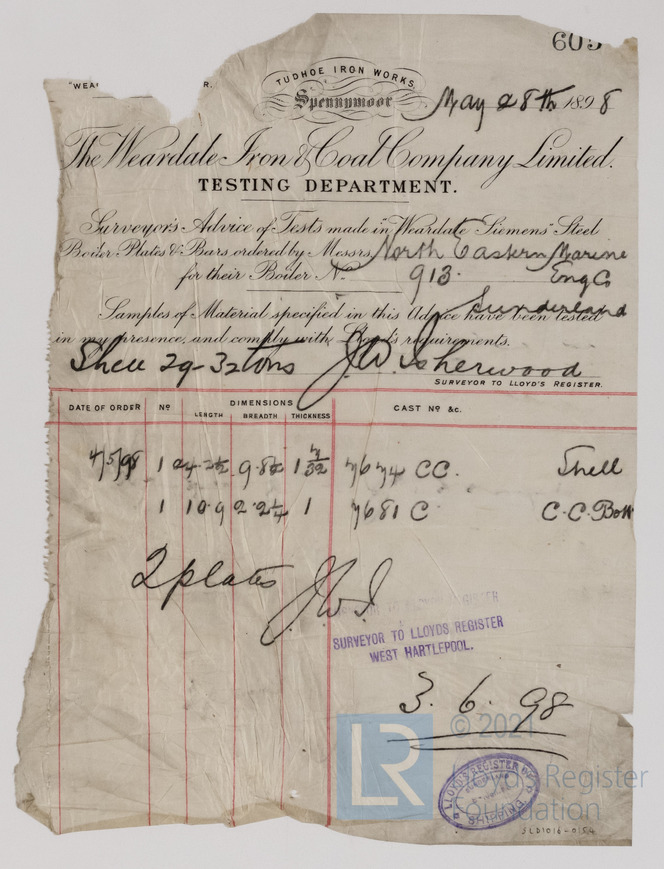 605
"WEA R.
TUDHOE IRON WORKS,
Spennymoor
May 28th 1898
The Weardale Iron & Coal Company Limited.
TESTING DEPARTMENT.
Surveyor's Advice of Tests made in Weardale Siemens' Steel
Boiler Plates & Bars ordered by Messrs North Eastern Marine
for their Boiler No. 913. Eng Co
Sunderland
Samples of Material specified in this Advice have been tested
in my presence, and comply with Board's requirements.
Shell 29-32 tons J.W. Isherwood
SURVEYOR TO LLOYD'S REGISTER.
DATE OF ORDER No DIMENSIONS CAST No &c.
LENGTH BREADTH THICKNESS
4/5/98 1 24-2½ 9-8½ 1 7/32 7674 CC. Shell
1 10.9 2.2¼ 1 7681 C C.C.Bott
2 plates J.W.I.
SURVEYOR TO LLOYDS REGISTER
WEST HARTLEPOOL.
3. 6. 98
LR
© 2021
Lloyd's Register
Foundation
LLOYD'S REGISTER
SHIPPING
SLD1016-0154